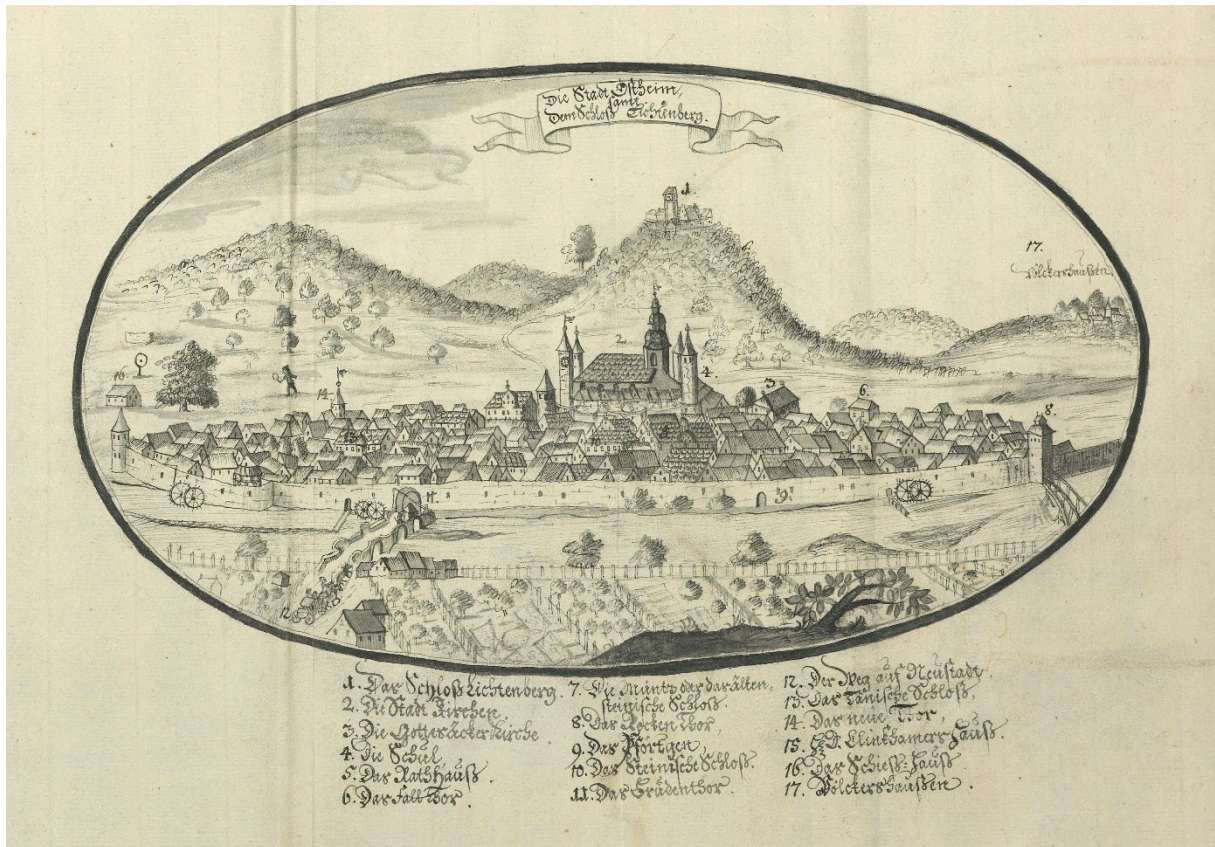 Die Stadt Ostheim,
samt
Dem Schloß Lichtenberg.
1.
17.
Völckershaußen
2.
4.
3.
6.
16
14
8.
11
9.
12
1. Das Schloß Lichtenberg.
2. Die Stadt Kirchen,
3. Die Gottesäcker Kirche
4. Die Schul,
5. Das Rathhauß.
6. Das Fallthor.
7. Die Müntz oder das älten,
steinische Schloß.
8. Das Rocken Thor,
9. Das Pförtgen,
10. Das Steinische Schloß.
11. Das
12. Der Weg auf Neustadt,
13. Das Tänische Schloß.
14. Das neüe Thor,
15. Clinkhamers Hauß.
16. das Schieß-Hauß
17. Völckershaußen.